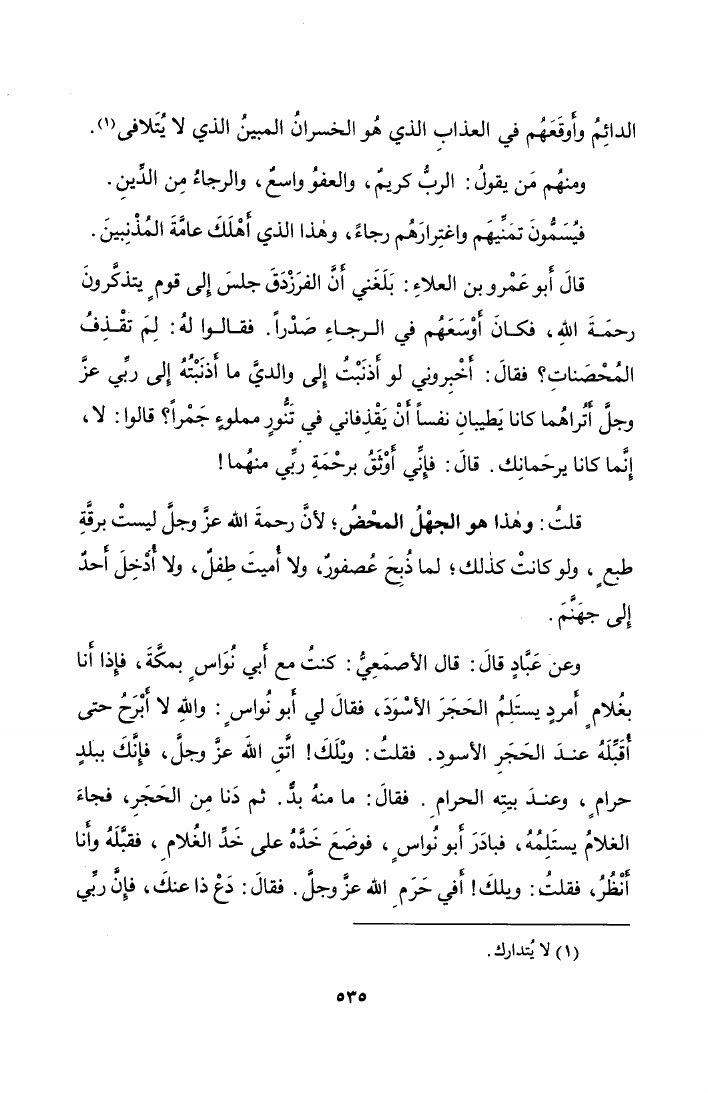 الدائِمُ وأَوقَعَهُم في العذابِ الذي هُو الخسرانُ المبينُ الذي لا يُتَلافى(١).
ومنهُم مَن يقولُ: الربُّ كريمٌ، والعفوُ واسعٌ، والرجاءُ مِن الدِّينِ.
فيُسَمُّونَ تمَنِّيَهم واغتِرارَهُم رجاءً، وهٰذا الذي أَهْلَكَ عامَّةَ المُذْنِبينَ.
قالَ أَبو عَمْرو بن العلاءِ: بَلَغَني أَنَّ الفَرَزْدَقَ جلسَ إِلى قومٍ يتذكَّرونَ
رحمَـةَ اللهِ، فكـانَ أَوْسَعَهُم في الـرجـاءِ صَدْراً. فقـالـوا لهُ: لِمَ تقْـذِفُ
المُحْصَناتِ؟ فقالَ: أَخْبِروني لو أَذنَبْتُ إِلى والديَّ ما أَذنَبْتُهُ إِلى ربِّي عزَّ
وجلَّ أَتُراهُما كانا يَطيبانِ نفساً أَنْ يَقْذِفاني في تَنُّورٍ مملوءٍ جَمْراً؟ قالوا: لا،
إِنَّما كانا يرحَمانِك. قالَ: فإِنِّي أَوْثَقُ برحْمَةِ ربِّي منهُما!
قلتُ: وهٰذا هو الجهْلُ المحْضُ؛ لأنَّ رحمةَ الله عزَّ وجلَّ ليستْ برقَّةِ
طبعٍ، ولو كانتْ كذٰلك؛ لما ذُبِحَ عُصفورٌ، ولا أُميتَ طِفلٌ، ولا أُدْخِلَ أَحدٌ
إِلى جهَنَّمَ.
وعن عَبَّادٍ قالَ: قال الأصمَعِيُّ: كنتُ مع أَبي نُوَاسٍ بمكَّةَ، فإِذا أَنا
بغُلامٍ أَمردٍ يستَلِمُ الحَجَرَ الأسْوَدَ، فقالَ لي أَبو نُواسٍ: واللهِ لا أَبْرَحُ حتى
أُقبِّلَهُ عنـدَ الحَجَرِ الأسودِ. فقلتُ: ويْلَكَ! اتَّقِ اللهَ عزَّ وجلَّ، فإِنَّكَ ببلدٍ
حرامٍ، وعنـدَ بيتِه الحرامِ. فقالَ: ما منهُ بدٌّ. ثم دَنا مِن الحَجَرِ، فجاءَ
الغلامُ يستَلِمُهُ، فبادَرَ أَبو نُواسٍ، فوضَعَ خَدَّهُ على خَدِّ الغُلامِ، فقبَّلَهُ وأَنا
أَنْظُرُ، فقلتُ: ويلكَ! أَفي حَرَمِ الله عزَّ وجلَّ. فقالَ: دَعْ ذا عنكَ، فإِنَّ ربِّي
(١) لا يُتدارك.
٥٣٥